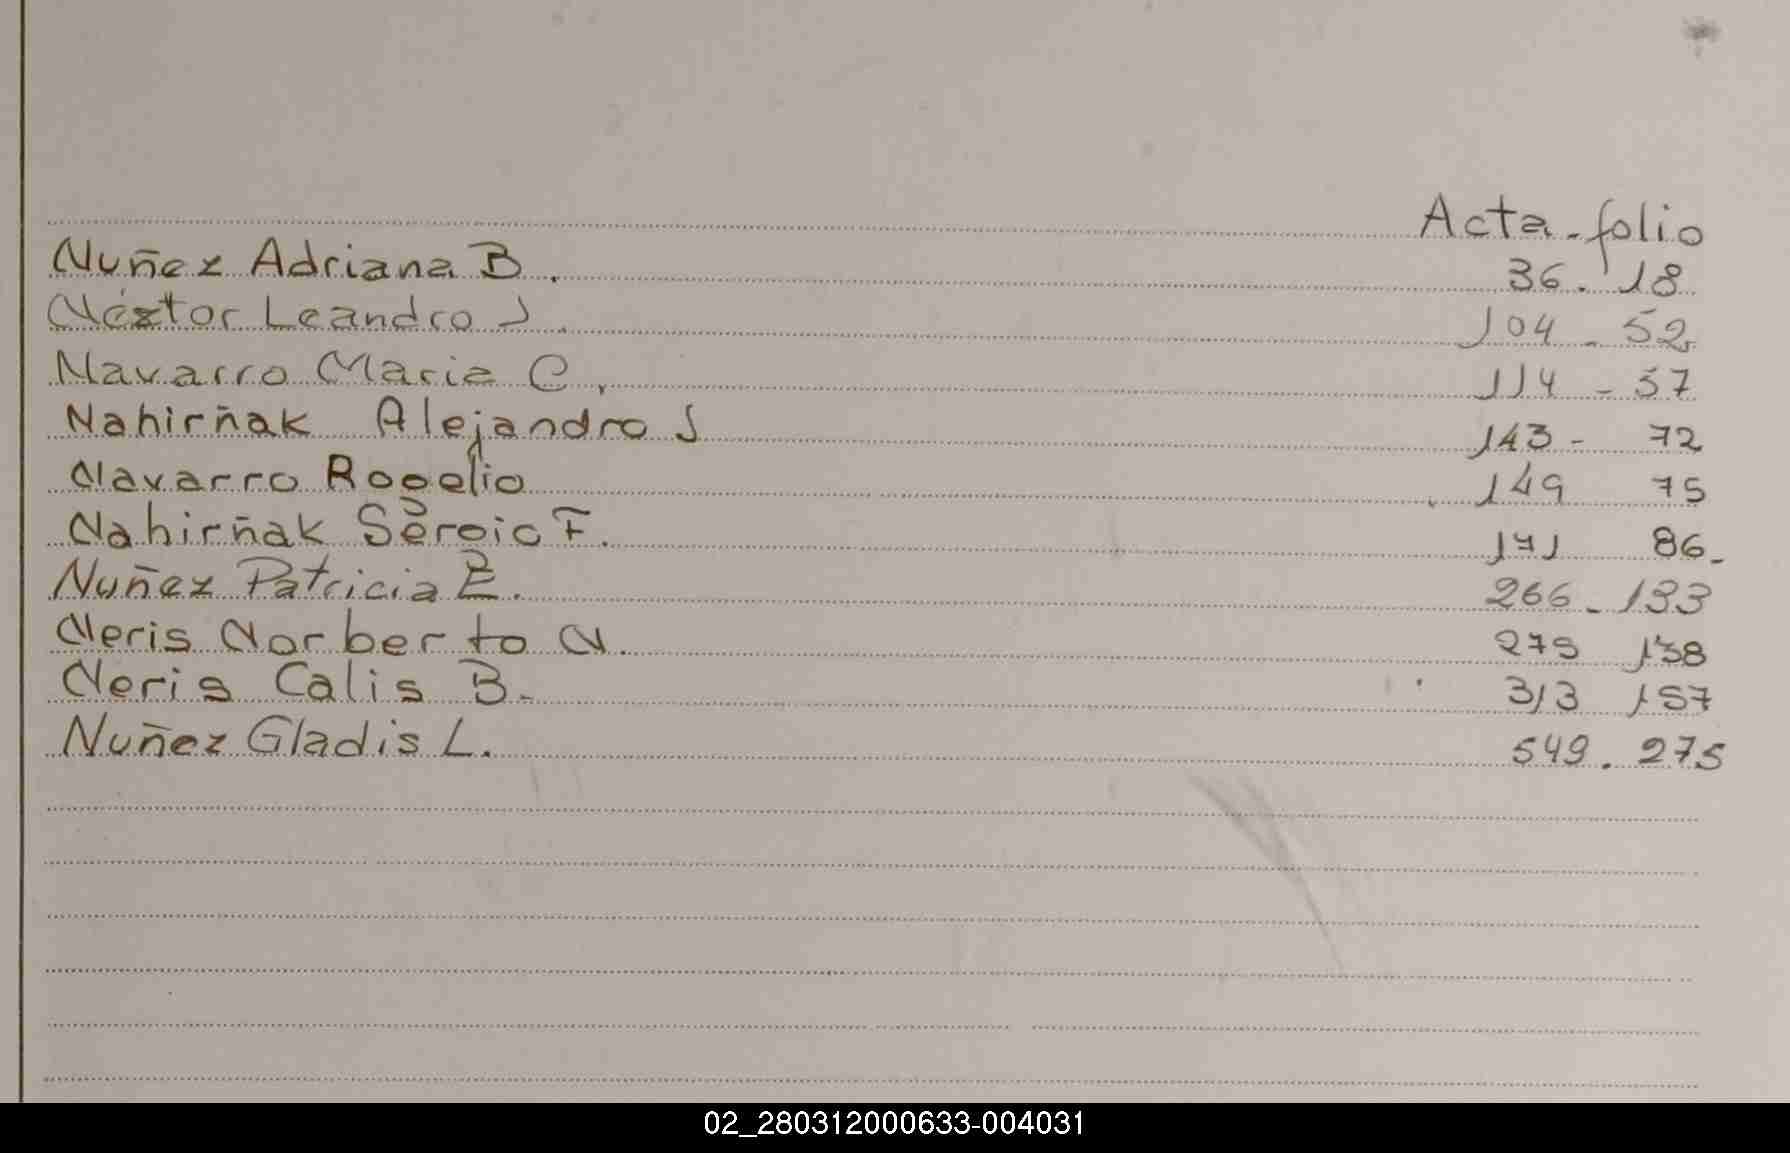 Acta - folio
Nuñez Adriana B. 36. 18
Néstor Leandro J. 104 - 52
Navarro Maria C. 114 - 57
Nahirñak Alejandro J 143 - 72
Navarro Rogelio 149 75
Nahirñak Sergio F. 171 86-
Nuñez Patricia E. 266 - 133
Neris Norberto N. 275 138
Neris Calis B. 313 157
Nuñez Gladis L. 549. 275
02_280312000633-004031